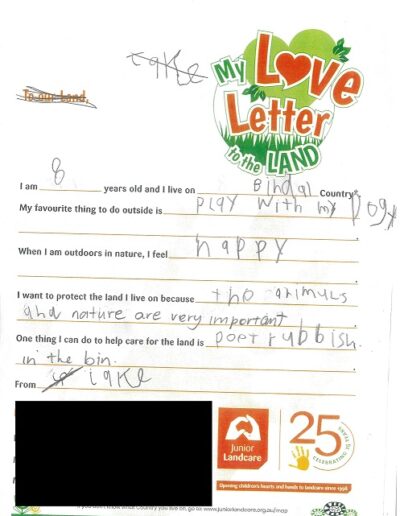 My Love
Letter
to the LAND
To our Land,
I am 8 years old and I live on Bindal Country*.
My favourite thing to do outside is play with my Dogy
When I am outdoors in nature, I feel happy
I want to protect the land I live on because tho animuls
and nature are very important
One thing I can do to help care for the land is poet rubbish.
in the bin.
From
Junior
Landcare
25
CELEBRATING 25 YEARS
Opening children's hearts and hands to landcare since 1998.
If you don't know what Country you live on, go to: www.juniorlandcare.org.au/map